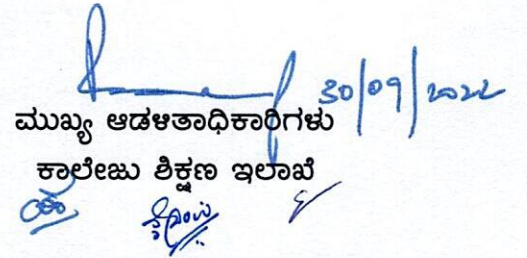 30/09/2022
ಮುಖ್ಯ ಆಡಳಿತಾಧಿಕಾರಿಗಳು
ಕಾಲೇಜು ಶಿಕ್ಷಣ ಇಲಾಖೆ